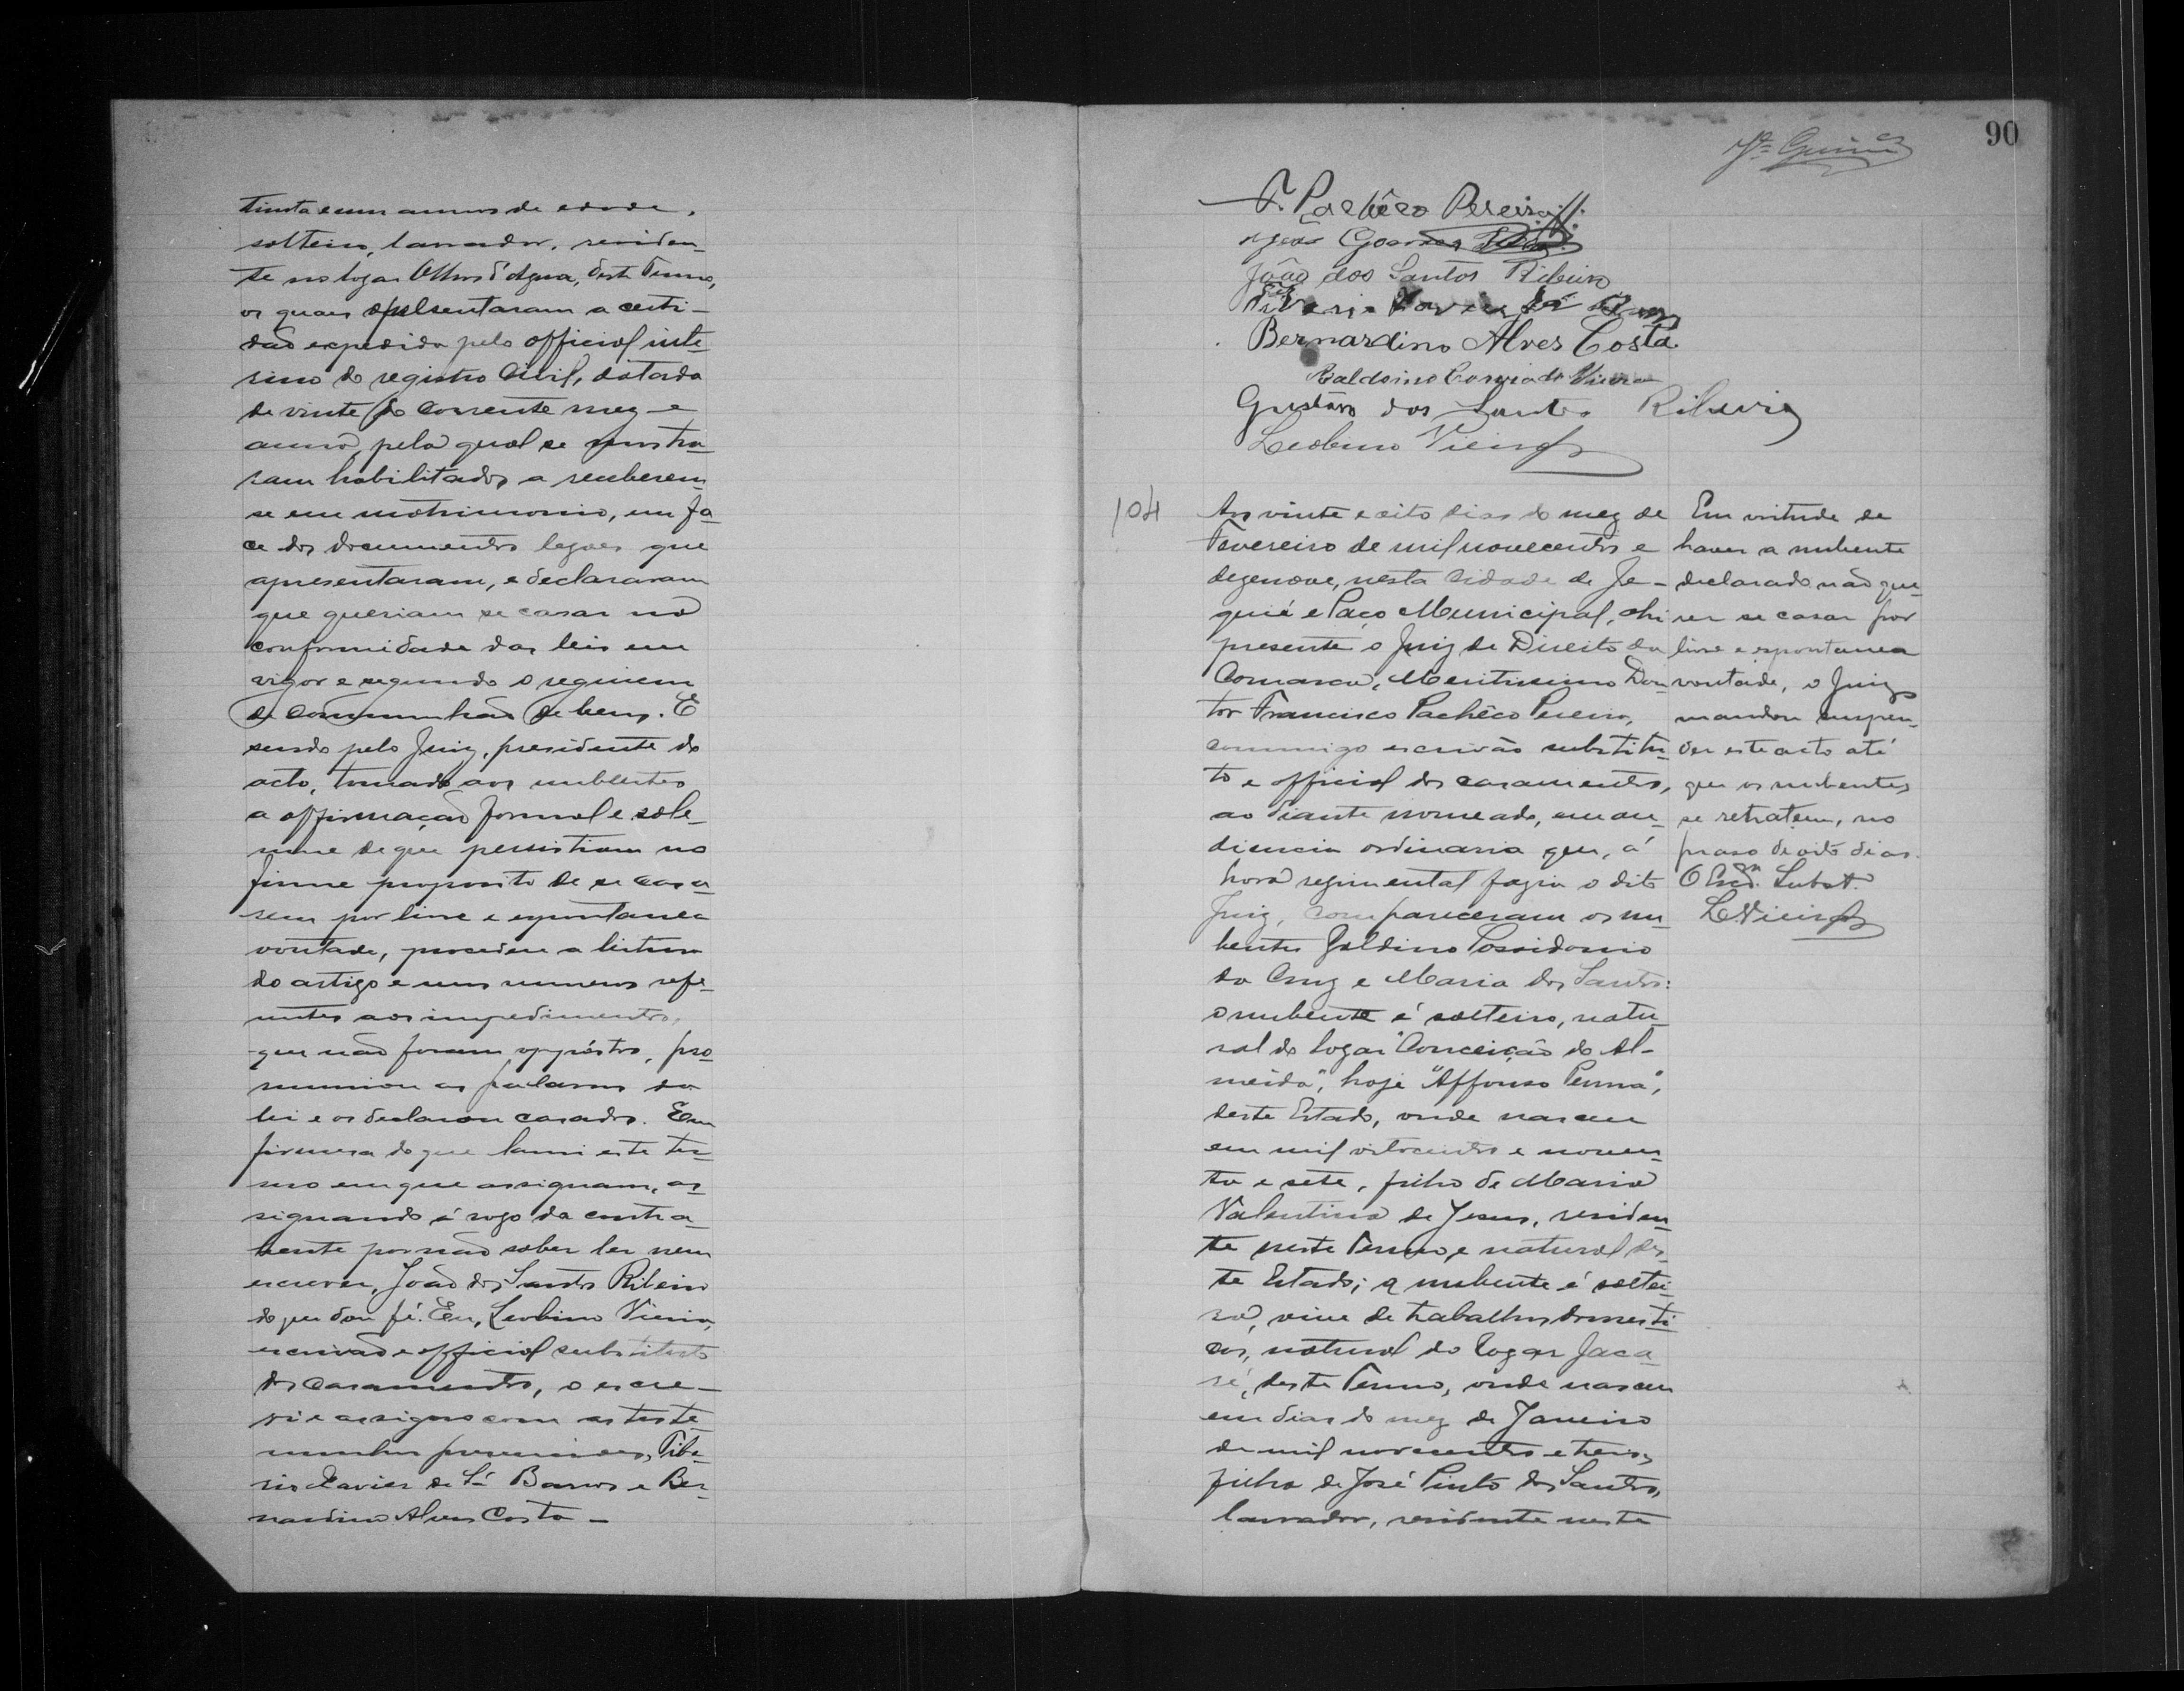 trinta e um annos de edade,
solteiro, lavrador, residen-
te no logar Olhos d'Agua, deste Termo,
os quaes apresentaram a certi-
dão expedida pelo official inte-
rino do registro Civil, datada
de vinte do corrente mez e
anno, pela qual se mostra-
ram habilitados a receberem-
se em matrimonio, em fa-
ce dos documentos legaes que
apresentaram, e declararam
que queriam se casar na
conformidade das leis em
vigor e segundo o regimem
de communhão de bens. E
sendo pelo Juiz, presidente do
acto, tomado aos nubentes
a affirmação formal e sole-
mne de que persistiam no
firme proposito de se casa-
rem por livre e espontanea
vontade, procedeu a leitura
do artigo e seus numeros refe-
rentes aos impedimentos,
que não foram oppóstos, pro-
nunciou as palavras da
lei e os declarou casados. Em
firmesa do que lavrei este ter-
mo em que assignam, as-
signando á rogo da contra-
hente por não saber ler nem
escrever, João dos Santos Ribeiro
do que dou fé. Eu, Leobino Vieira,
escrivão e official substituto
dos casamentos, o escre-
vi e assigno com as teste-
munhas presenciaes, Tibe-
rio Xavier de Sá Barros e Ber-
nardino Alves Costa -
90
F. Pachêco Pereira
João dos Santos Ribeiro
Bernardino Alves Costa
Gustavo dos Santos Ribeiro
Leobino Vieira
104
Aos vinte e oito dias do mez de
Fevereiro de mil novecentos e
dezenove, nesta Cidade de Je-
quié e Paço Municipal, ahi
presente o Juiz de Direito da
Comarca, Meritissimo Dou-
tor Francisco Pachêco Pereira,
commigo escrivão substitu-
to e official dos casamentos,
ao diante nomeado, em au-
diencia ordinaria que, á
hora regimental fazia o dito
Juiz, compareceram os nu-
bentes Galdino Possidonio
da Cruz e Maria dos Santos:
o nubente é solteiro, natu-
ral do logar "Conceição do Al-
meida", hoje "Affonso Penna",
deste Estado, onde nasceu
em mil oitocentos e noven-
ta e sete, filho de Maria
Valentina de Jesus, residen-
te neste Termo, e natural des-
te Estado; a nubente é soltei-
ra, vive de trabalhos domesti-
cos, natural do logar Jaca-
ré, deste Termo, onde nasceu
em dias do mez de Janeiro
de mil novecentos e tres,
filha de José Pinto dos Santos,
lavrador, residente neste
Em virtude de
haver a nubente
declarado não que-
rer se casar por
livre e espontanea
vontade, o Juiz
mandou suspen-
der este acto até
que os nubentes
se retratem, no
praso de oito dias.
O Escm. Subst.
LVieira